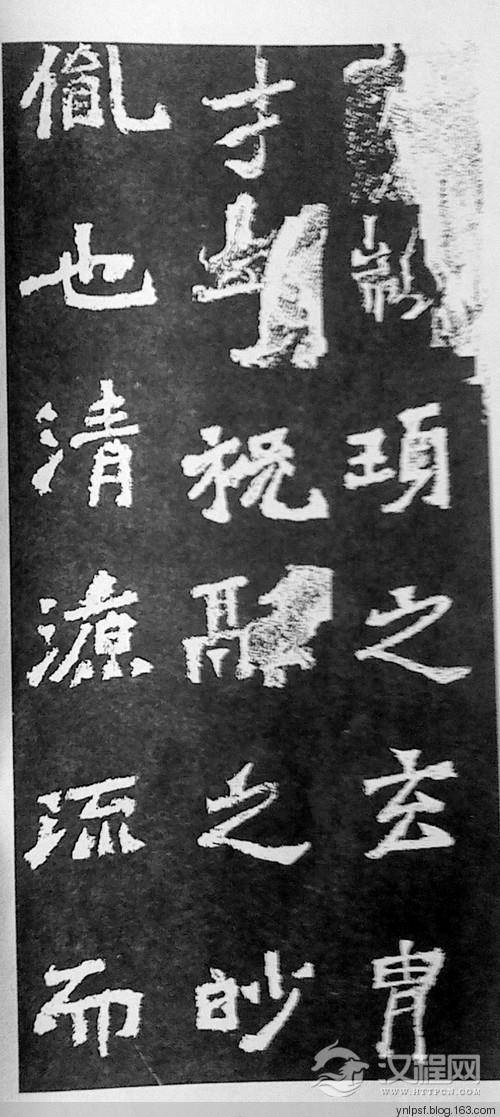 頊之玄胄
才祝融之眇
胤也清源流而
汉程网
WWW.HTTPCN.COM
ynlpsf.blog.163.com